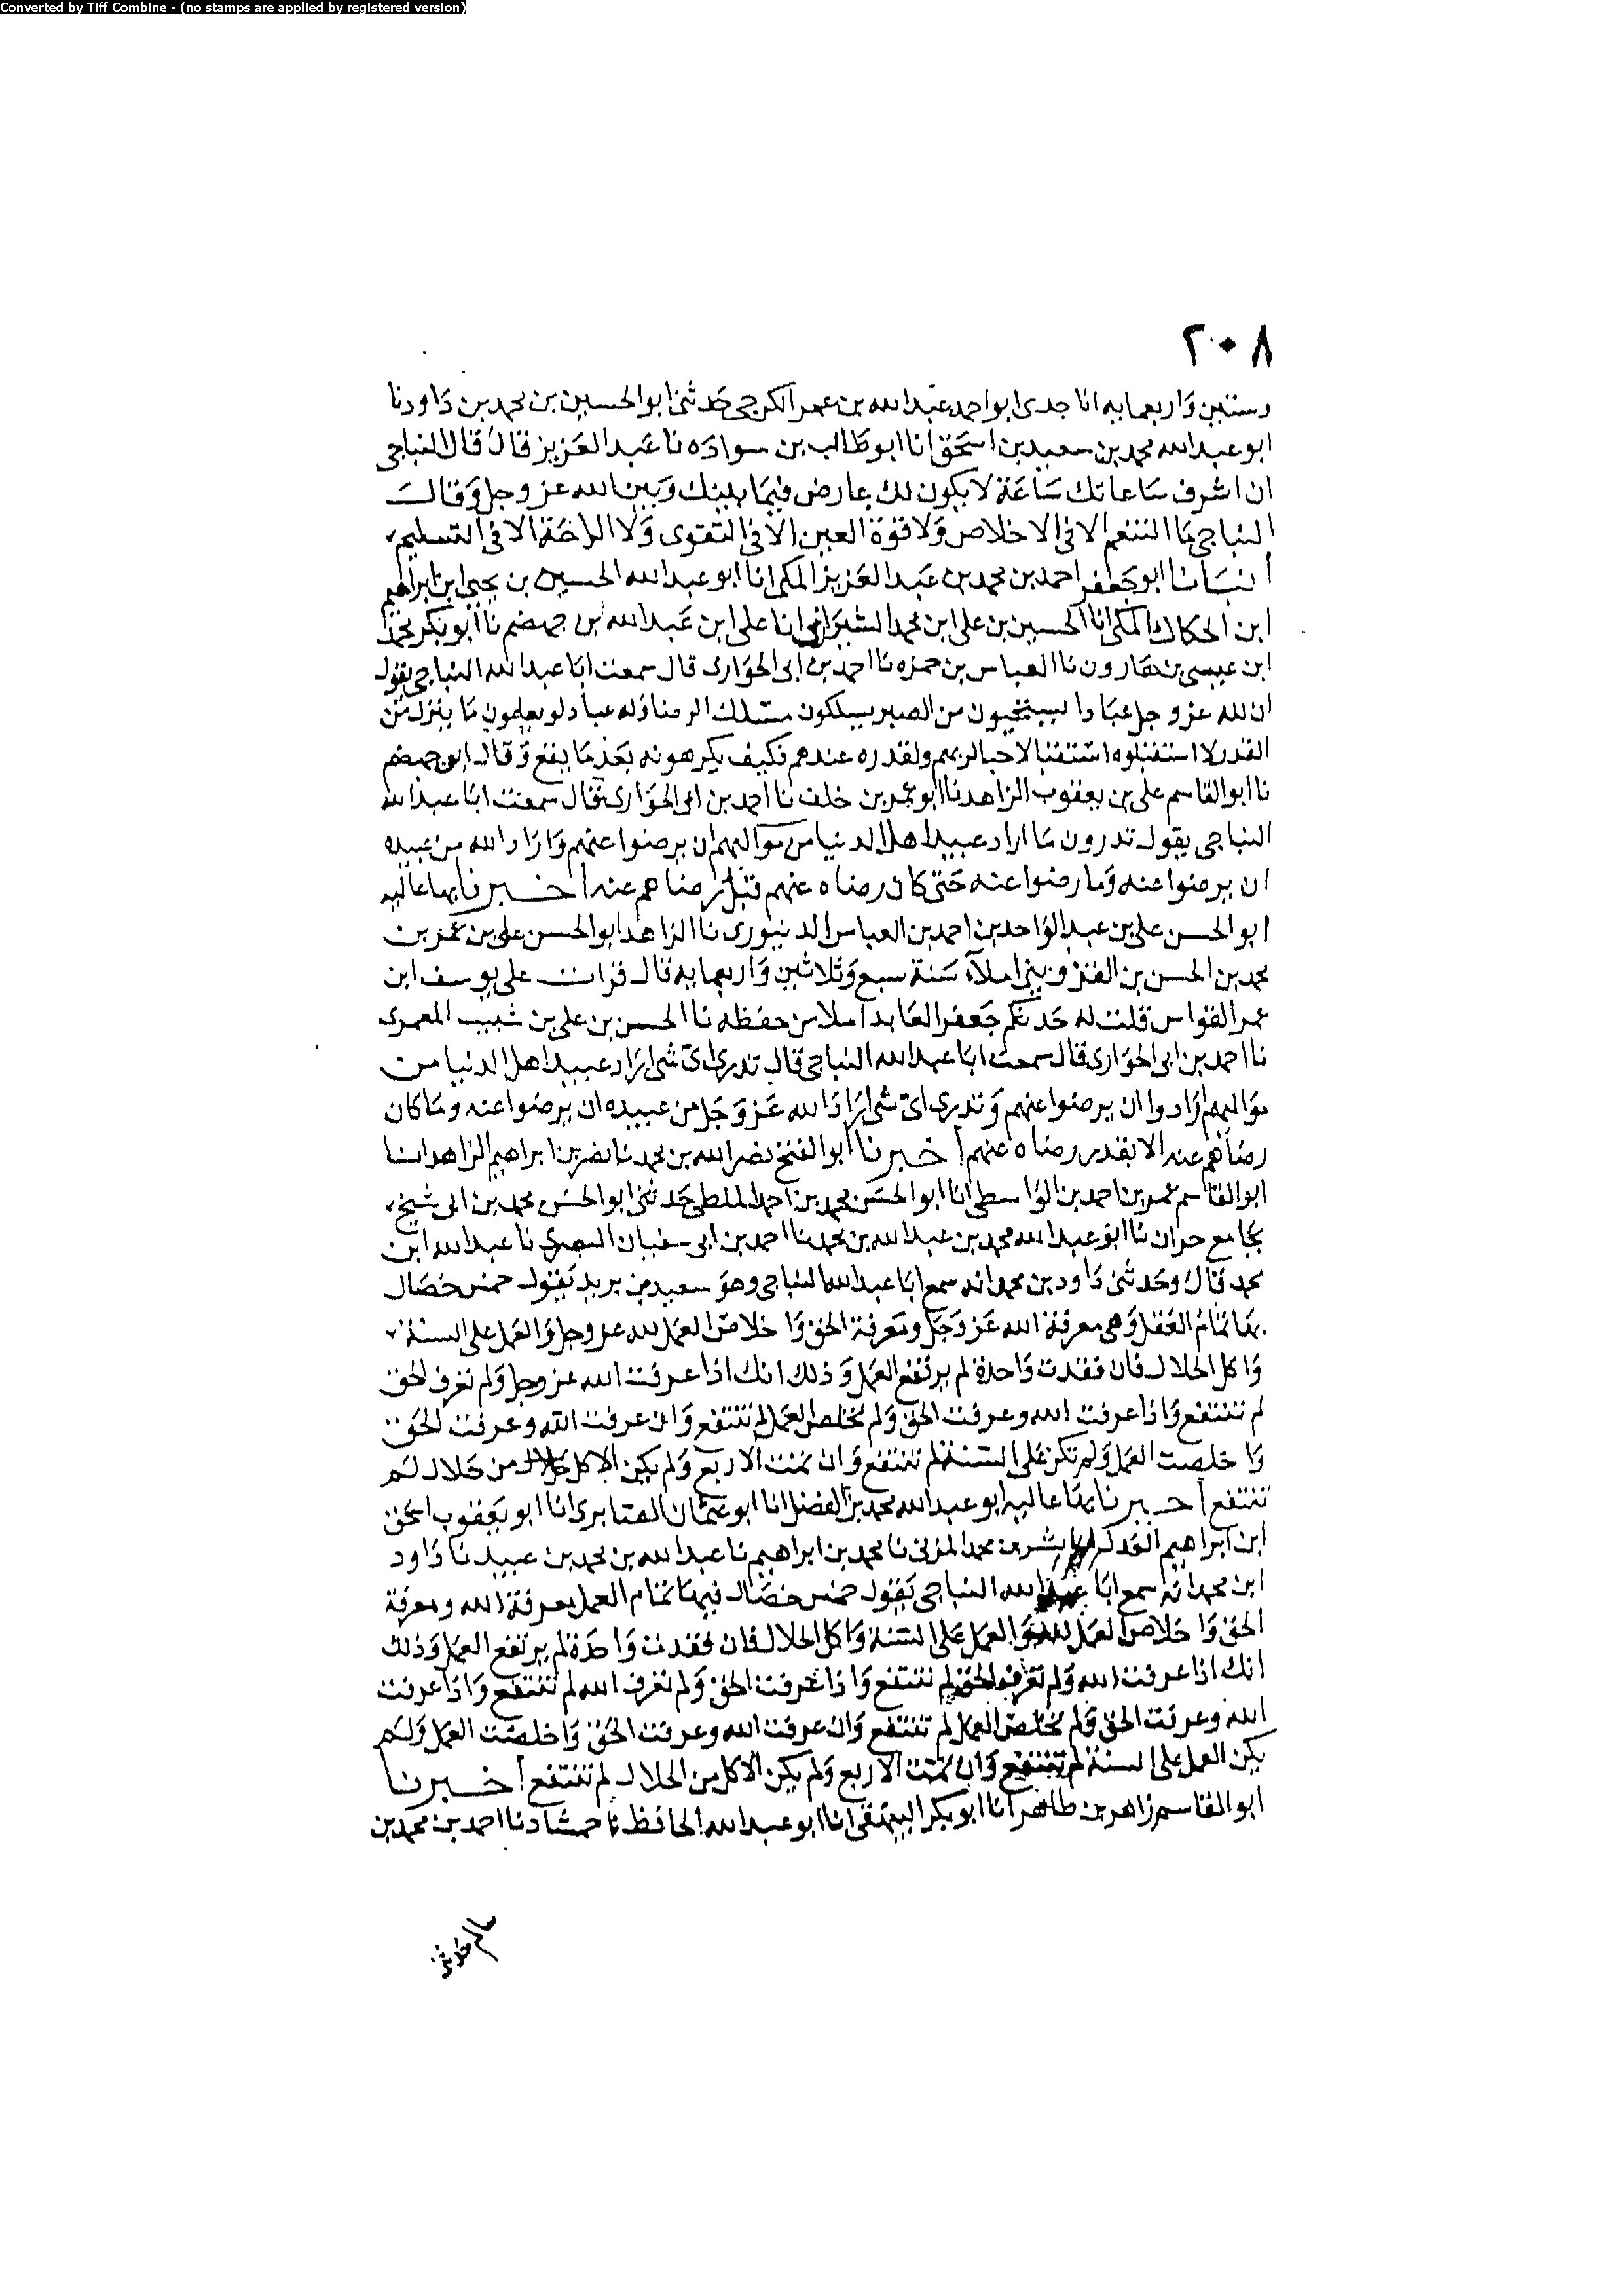 Converted by Tiff Combine - (no stamps are applied by registered version)
٢٠٨
وستين واربعمايه انا جدى ابو احمد عبد الله بن عمر الكرجى حدثنى ابو الحسين بن محمد بن داود نا
ابو عبد الله محمد بن سعيد بن اسحق انا ابو طالب بن سواده نا عبد العزيز قال قال النباجى
ان اشرف ساعاتك ساعة لا يكون لك عارض فيما بينك وبين الله عز وجل وقال
النباجى ما التنعم الا فى الاخلاص ولا قرة العين الا فى التقوى ولا الراحة الا فى التسليم
أنبانا ابو جعفر احمد بن محمد بن عبد العزيز المكى انا ابو عبد الله الحسين بن يحيى ابن ابراهيم
ابن الحكاك المكى انا الحسين بن على ابن محمد الشيرازى انا على ابن عبد الله بن جهضم نا ابو بكر محمد
ابن عيسى بن هارون نا العباس بن حمزه نا احمد بن ابى الحوارى قال سمعت ابا عبد الله النباجى يقول
ان لله عز وجل عبادا يستحيون من الصبر يسلكون مسلك الرضا وله عباد لو يعلمون ما ينزل من
القدر لاستقبلوه استقبالا حبا لربهم ولقدره عندهم فكيف يكرهونه بعد ما يقع وقال ابن جهضم
نا ابو القاسم على بن يعقوب الزاهد نا ابو محمد بن خلف نا احمد بن ابى الحوارى قال سمعت ابا عبد الله
النباجى يقول تدرون ما اراد عبيد اهل الدنيا من مواليهم ان يرضوا عنهم واراد الله من عبيده
ان يرضوا عنه وما رضوا عنه حتى كان رضاه عنهم قبل رضاهم عنه أخبرنا بها عاليه
ابو الحسن على بن عبد الواحد بن احمد بن العباس الدينورى نا الزاهد ابو الحسن على بن عمر بن
محمد بن الحسن بن القزوينى املآء سنة سبع وثلاثين واربعمايه قال قرات على يوسف ابن
عمر القواس قلت له حدثكم جعفر العابد املا من حفظه نا الحسن بن على بن شبيب المعمرى
نا احمد بن ابى الحوارى قال سمعت ابا عبد الله النباجى قال تدرى اى شى اراد عبيد اهل الدنيا من
مواليهم ارادوا ان يرضوا عنهم وتدرى اى شى اراد الله عز وجل من عبيده ان يرضوا عنه وما كان
رضاهم عنه الا بقدر رضاه عنهم أخبرنا ابو الفتح نصر الله بن محمد نا نصر بن ابراهيم الزاهد انا
ابو القاسم عمر بن احمد بن الواسطى انا ابو الحسن محمد بن احمد الملطى حدثنى ابو الحسن محمد بن ابى شيخ
بجامع حران نا ابو عبد الله محمد بن عبد الله بن محمد نا احمد بن ابى سفيان البصرى نا عبد الله ابن
محمد قال وحدثنى داود بن محمد انه سمع ابا عبد الله النباجى وهو سعيد بن بريد يقول خمس خصال
بها تمام العقل وهى معرفة الله عز وجل ومعرفة الحق واخلاص العمل لله عز وجل والعمل على السنة
واكل الحلال فان فقدت واحدة لم يرتفع العمل وذلك انك اذا عرفت الله عز وجل ولم تعرف الحق
لم تنتفع واذا عرفت الله وعرفت الحق ولم تخلص العمل لم تنتفع وان عرفت الله وعرفت الحق
واخلصت العمل ولم تكن على السنة لم تنتفع وان تمت الاربع ولم يكن الاكل من حلال لم
تنتفع أخبرنا بها عاليه ابو عبد الله محمد بن الفضل انا ابو عثمان الصابرى انا ابو يعقوب اسحق
ابن ابراهيم بشر بن محمد المزنى نا محمد بن ابراهيم نا عبد الله بن محمد بن عبيد نا داود
ابن محمد انه سمع ابا عبد الله النباجى يقول خمس خصال فيها تمام العمل معرفة الله ومعرفة
الحق واخلاص العمل لله والعمل على السنة واكل الحلال فان فقدت واحدة لم يرتفع العمل وذلك
انك اذا عرفت الله ولم تعرف الحق لم تنتفع واذا عرفت الحق ولم تعرف الله لم تنتفع واذا عرفت
الله وعرفت الحق ولم تخلص العمل لم تنتفع وان عرفت الله وعرفت الحق واخلصت العمل ولم
يكن العمل على السنة لم تنتفع وان تمت الاربع ولم يكن الاكل من الحلال لم تنتفع أخبرنا
ابو القاسم زاهر بن طاهر انا ابو بكر البيهقى انا ابو عبد الله الحافظ نا حمشاد نا احمد بن محمد بن